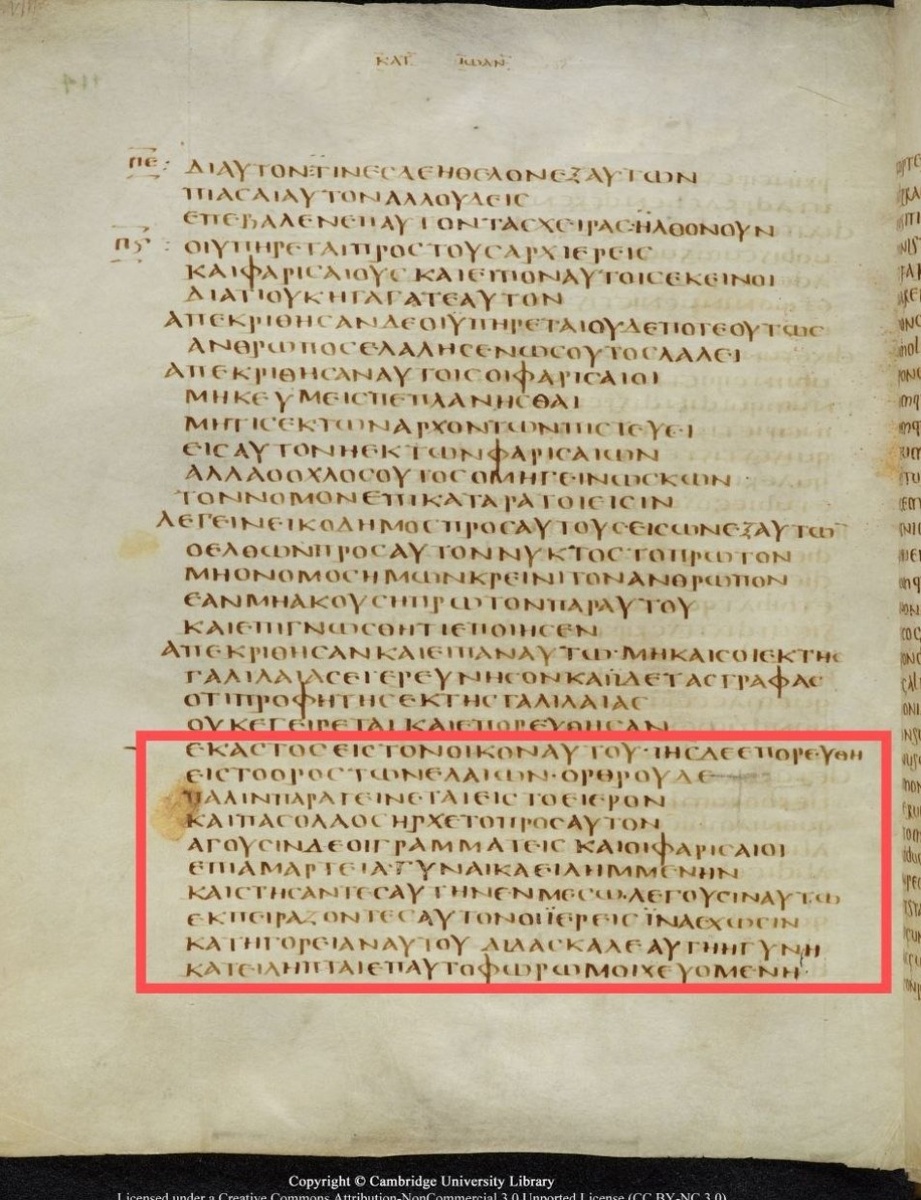 ΚΑΤ ΙΩΑΝ
ΠΕ ΔΙΑΥΤΟΝ·ΤΙΝΕΣΔΕΗΘΕΛΟΝΕΞΑΥΤΩΝ
ΠΙΑΣΑΙΑΥΤΟΝΑΛΛΟΥΔΕΙΣ
ΕΠΕΒΑΛΕΝΕΠΑΥΤΟΝΤΑΣΧΕΙΡΑΣ·ΗΛΘΟΝΟΥΝ
ΠϚ ΟΙΥΠΗΡΕΤΑΙΠΡΟΣΤΟΥΣΑΡΧΙΕΡΕΙΣ
ΚΑΙΦΑΡΙΣΑΙΟΥΣ ΚΑΙΕΙΠΟΝΑΥΤΟΙΣΕΚΕΙΝΟΙ
ΔΙΑΤΙΟΥΚΗΓΑΓΑΤΕΑΥΤΟΝ
ΑΠΕΚΡΙΘΗΣΑΝΔΕΟΙΥΠΗΡΕΤΑΙΟΥΔΕΠΟΤΕΟΥΤΩΣ
ΑΝΘΡΩΠΟΣΕΛΑΛΗΣΕΝΩΣΟΥΤΟΣΛΑΛΕΙ
ΑΠΕΚΡΙΘΗΣΑΝΑΥΤΟΙΣΟΙΦΑΡΙΣΑΙΟΙ
ΜΗΚΕΥΜΕΙΣΠΕΠΛΑΝΗΣΘΑΙ
ΜΗΤΙΣΕΚΤΩΝΑΡΧΟΝΤΩΝΠΙΣΤΕΥΕΙ
ΕΙΣΑΥΤΟΝΗΕΚΤΩΝΦΑΡΙΣΑΙΩΝ
ΑΛΛΑΟΟΧΛΟΣΟΥΤΟΣΟΜΗΓΕΙΝΩΣΚΩΝ
ΤΟΝΝΟΜΟΝΕΠΙΚΑΤΑΡΑΤΟΙΕΙΣΙΝ
ΛΕΓΕΙΝΕΙΚΟΔΗΜΟΣΠΡΟΣΑΥΤΟΥΣΕΙΣΩΝΕΞΑΥΤΩ̅
ΟΕΛΘΩΝΠΡΟΣΑΥΤΟΝΝΥΚΤΟΣΤΟΠΡΩΤΟΝ
ΜΗΟΝΟΜΟΣΗΜΩΝΚΡΕΙΝΙΤΟΝΑΝΘΡΩΠΟΝ
ΕΑΝΜΗΑΚΟΥΣΗΠΡΩΤΟΝΠΑΡΑΥΤΟΥ
ΚΑΙΕΠΙΓΝΩΣΘΗΤΙΕΠΟΙΗΣΕΝ
ΑΠΕΚΡΙΘΗΣΑΝΚΑΙΕΙΠΑΝΑΥΤΩ·ΜΗΚΑΙΣΟΙΕΚΤΗΣ
ΓΑΛΙΛΑΙΑΣΕΙΕΡΕΥΝΗΣΟΝΚΑΙΪΔΕΤΑΣΓΡΑΦΑΣ
ΟΤΙΠΡΟΦΗΤΗΣΕΚΤΗΣΓΑΛΙΛΑΙΑΣ
ΟΥΚΕΓΕΙΡΕΤΑΙ ΚΑΙΕΠΟΡΕΥΘΗΣΑΝ
ΕΚΑΣΤΟΣΕΙΣΤΟΝΟΙΚΟΝΑΥΤΟΥ·ΙΗΣΔΕΕΠΟΡΕΥΘΗ
ΕΙΣΤΟΟΡΟΣΤΩΝΕΛΑΙΩΝ·ΟΡΘΡΟΥΔΕ
ΠΑΛΙΝΠΑΡΑΓΕΙΝΕΤΑΙΕΙΣΤΟΕΙΕΡΟΝ
ΚΑΙΠΑΣΟΛΑΟΣΗΡΧΕΤΟΠΡΟΣΑΥΤΟΝ
ΑΓΟΥΣΙΝΔΕΟΙΓΡΑΜΜΑΤΕΙΣ ΚΑΙΟΙΦΑΡΙΣΑΙΟΙ
ΕΠΙΑΜΑΡΤΕΙΑ·ΓΥΝΑΙΚΑΕΙΛΗΜΜΕΝΗΝ
ΚΑΙΣΤΗΣΑΝΤΕΣΑΥΤΗΝΕΝΜΕΣΩ·ΛΕΓΟΥΣΙΝΑΥΤΩ
ΕΚΠΕΙΡΑΖΟΝΤΕΣΑΥΤΟΝΟΙΪΕΡΕΙΣ ΪΝΑΕΧΩΣΙΝ
ΚΑΤΗΓΟΡΕΙΑΝΑΥΤΟΥ ΔΙΔΑΣΚΑΛΕΑΥΤΗΗΓΥΝΗ
ΚΑΤΕΙΛΗΠΤΑΙΕΠΑΥΤΟΦΩΡΩΜΟΙΧΕΥΟΜΕΝΗ·
Copyright © Cambridge University Library
Licensed under a Creative Commons Attribution-NonCommercial 3.0 Unported License (CC BY-NC 3.0)